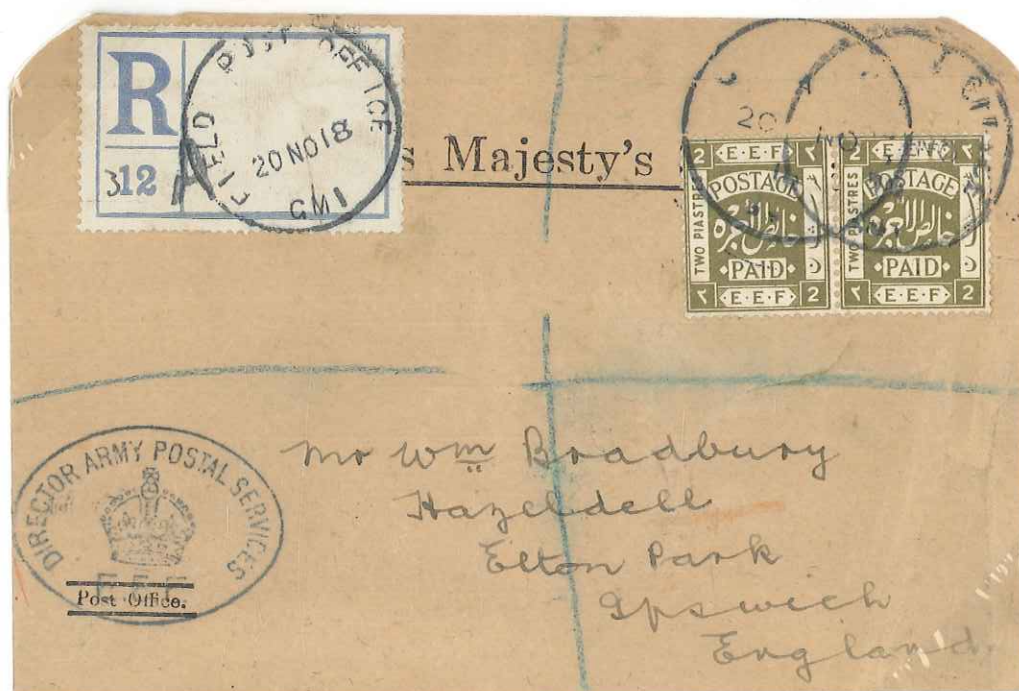 R
312
FIELD POST OFFICE
20 NO 18
GM1
s Majesty's
20
NO
2 E·E·F ٢
TWO PIASTRES
POSTAGE
خالص الاجرة
PAID
٢ E·E·F 2
2 E·E·F ٢
TWO PIASTRES
POSTAGE
خالص الاجرة
PAID
٢ E·E·F 2
DIRECTOR ARMY POSTAL SERVICES
E.E.F
Post Office.
Mr Wm Bradbury
Hazeldell
Elton Park
Ipswich
England.